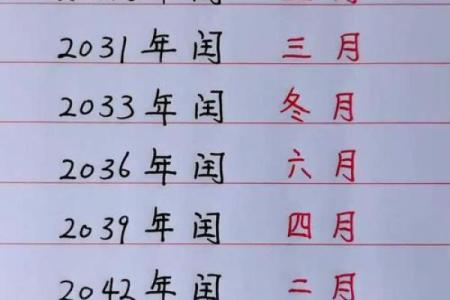 2031年闰 三月
2033年闰 冬月
2036年闰 六月
2039年闰 四月
2042年闰 二月